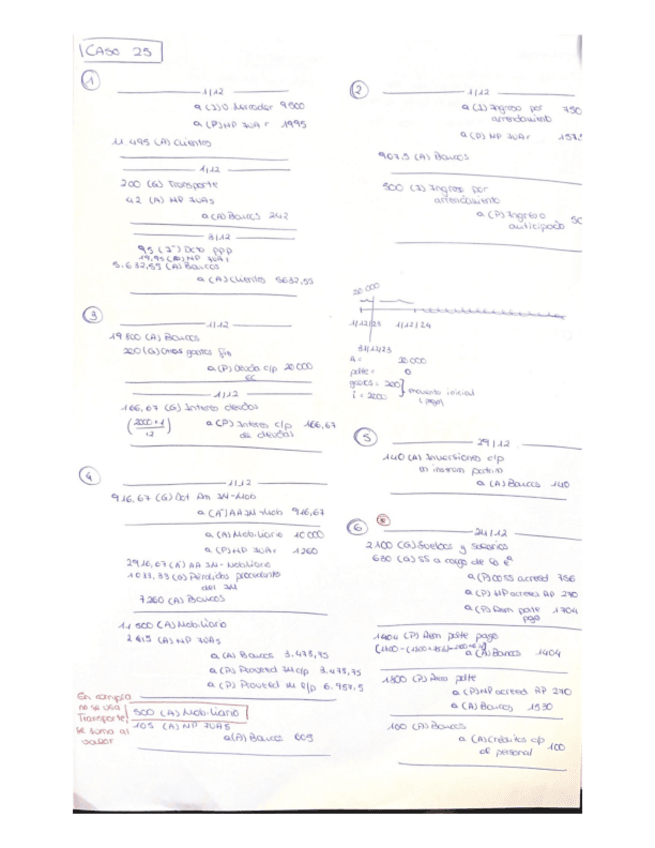 CASO 25
1
1/12
a (I) V Mercader 9500
a (P) HP IVA r 1995
11 495 (A) Clientes
1/12
200 (G) Transporte
42 (A) HP IVAs
a (A) Bancos 242
3/12
95 (I-) Dcto ppp
19,95 (P) HP IVA r
5.632,55 (A) Bancos
a (A) Clientes 5632,55
3
1/12
19 800 (A) Bancos
200 (G) Otros gastos fin
a (P) Deuda c/p 20 000
EC
1/12
166,67 (G) Interes deudas
(2000 * 1
12)
a (P) Interes c/p 166,67
de deudas
4
1/12
916,67 (G) Dot Am IN-Mob
a (A-) AA IN-Mob 916,67
a (A) Mobiliario 10 000
a (P) HP IVA r 1260
2916,67 (A-) AA IN-Mobiliario
1033,33 (G) Pérdidas procedente
del IN
7260 (A) Bancos
11 500 (A) Mobiliario
2415 (A) HP IVAs
a (A) Bancos 3.478,75
a (P) Proveed IN c/p 3.478,75
a (P) Proveed IN l/p 6.957,5
En compra
no se usa
Transporte
se suma al
valor
500 (A) Mobiliario
105 (A) HP IVAs
a (A) Bancos 605
2
1/12
a (I) Ingreso por 750
arrendamiento
a (P) HP IVAr 157,5
907,5 (A) Bancos
500 (I) Ingreso por
arrendamiento
a (P) Ingreso
anticipado
20 000
1/12/23 1/12/24
31/12/23
A = 20 000
gastos = 200
i = 2000
momento inicial
(pago)
5
29/12
140 (A) Inversiones c/p
en instrum patrim
a (A) Bancos 140
6
24/12
2100 (G) Sueldos y salarios
630 (G) SS a cargo de la eª
a (P) OOSS acreed 756
a (P) HP acreed RP 270
a (P) Rem pdte 1704
pago
1404 (P) Rem pdte pago
a (A) Bancos 1404
1800 (P) Rem pdte
a (P) HP acreed RP 270
a (A) Bancos 1530
100 (A) Bancos
a (A) Créditos c/p 100
al personal